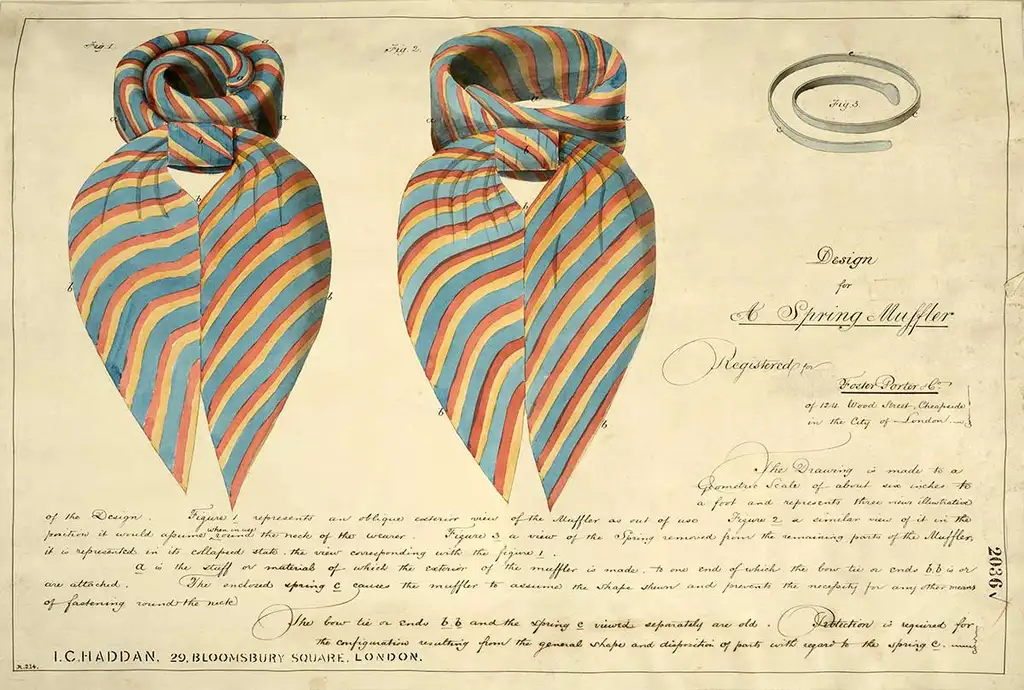 Fig. 1.
Fig. 2.
Fig. 3.
a
a
a
a
a
b
b
b
b
b
b
b
c
c
c
Design
for
A Spring Muffler
Registered for
Foster Porter & Co
of 124 Wood Street, Cheapside
in the City of London.
The Drawing is made to a
Geometric Scale of about six inches to
a foot and represents three views illustrative
of the Design. Figure 1 represents an oblique exterior view of the Muffler as out of use Figure 2 a similar view of it in the
position it would assume when in use round the neck of the wearer. Figure 3 a view of the Spring removed from the remaining parts of the Muffler,
it is represented in its collapsed state, the view corresponding with the figure 1.
a is the stuff or material of which the exterior of the muffler is made, to one end of which the bow tie or ends b.b is or
are attached. The enclosed spring c causes the muffler to assume the shape shewn and prevents the necessity for any other means
of fastening round the neck
The bow tie or ends b.b and the spring c viewed separately are old. Protection is required for
the configuration resulting from the general shape and disposition of parts with regard to the spring c.
I.C. HADDAN, 29, BLOOMSBURY SQUARE, LONDON.
2036